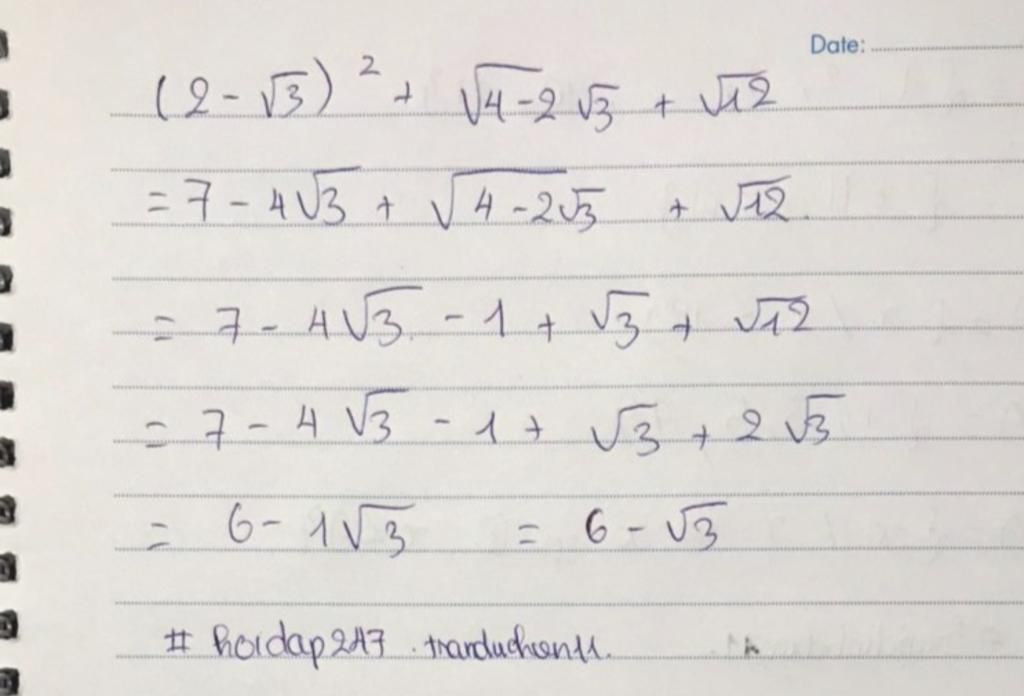 Date:
(2 - √3)² + √(4 - 2√3) + √12
= 7 - 4√3 + √(4 - 2√3) + √12.
= 7 - 4√3 - 1 + √3 + √12
= 7 - 4√3 - 1 + √3 + 2√3
= 6 - 1√3 = 6 - √3
# hoidap247 . tranduchien11.